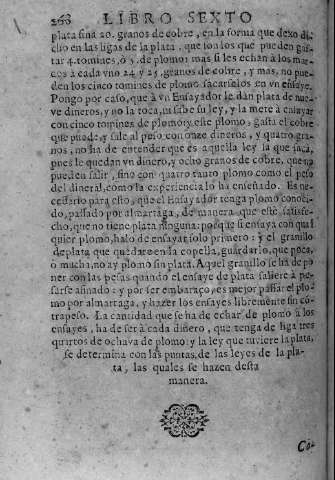 260 LIBRO SEXTO
plata sina 20. granos de cobre, en la forma que dexo di-
cho en las ligas de la plata, que son los que pueden gas-
tar 4. tomines, ò 5. de plomo: mas si les echan à los mar-
cos à cada vno 24 y 25. granos de cobre, y mas, no pue-
den los cinco tomines de plomo sacarselos en vn ensaye.
Pongo por caso, que à vn Ensayador le dan plata de nue-
ve dineros, y no la toca, ni sabe su ley, y la mete à ensayar
con cinco tomines de plomo: y este plomo, gasta el cobre
que puede, y sale al peso con onze dineros, y quatro gra-
nos, no ha de entender que es aquella ley la que saca,
pues le quedan vn dinero, y ocho granos de cobre, que no
pueden salir, sino con quatro tanto plomo como el peso
del dineral, como la experiencia lo ha enseñado. Es ne-
cessario para esto, que el Ensayador tenga plomo conoci-
do, passado por almartaga, de manera, que esté satisfe-
cho, que no tiene plata ninguna: porque si ensaya con qual
quier plomo, halo de ensayar solo primero: y el granillo
de plata que quedare en la copella, guardarlo, que poca,
ò mucha, no ay plomo sin plata. Aquel granillo se ha de po
ner con las pesas quando el ensaye de plata saliere à pe-
sarse afinado: y por ser embaraço, es mejor passar el plo-
mo por almartaga, y hazer los ensayes libremente sin cõ-
trapeso. La cantidad que se ha de echar de plomo à los
ensayes, ha de ser à cada dinero, que tenga de liga tres
quartos de ochava de plomo: y la ley que tuviere la plata,
se determina con las puntas, de las leyes de la pla-
ta, las quales se hazen desta
manera.